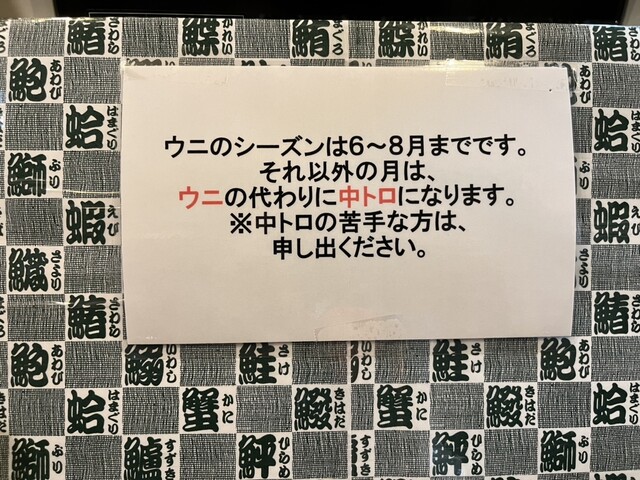 ウニのシーズンは6～8月までです。
それ以外の月は、
ウニの代わりに中トロになります。
※中トロの苦手な方は、
申し出ください。
鰆 さわら
鰈 かれい
鮪 まぐろ
鰈 かれい
鮪 まぐろ
鰆 さわら
鮑 あわび
蛤 はまぐり
蛤 はまぐり
鰤 ぶり
蝦 えび
蝦 えび
鱵 さより
鰆 さわら
鰆 さわら
鮑 あわび
鰯 いわし
鮭 さけ
いわし
鮭 さけ
鰯 いわし
鮑 あわび
蛤 はまぐり
蟹 かに
きはだ
蟹 かに
きはだ
蛤 はまぐり
鰤 ぶり
鱸 すずき
鮃 ひらめ
すずき
鮃 ひらめ
鰤 ぶり